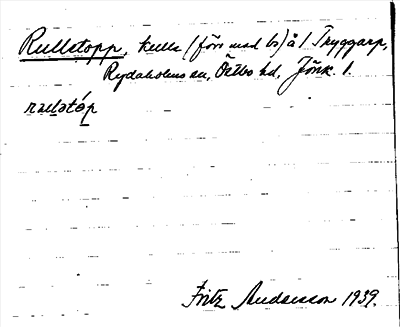 Rulletopp, kulle (förr med bs) å 1 Tryggarp,
Rydaholms sn, Östbo hd, Jönk. l.
rulǝtóp
Fritz Andersson 1939.